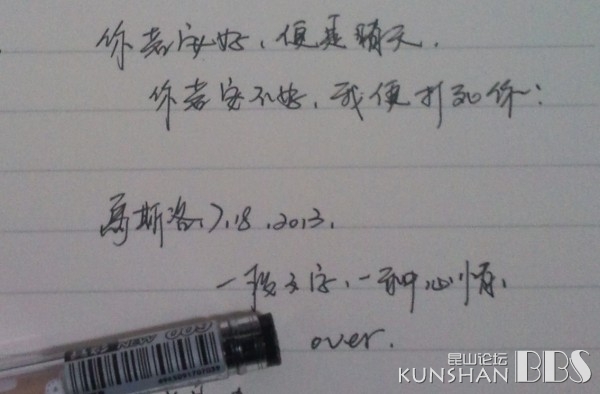 你若安好，便是晴天．
你若安不好，我便打死你：
马斯洛．7．18．2013．
一段文字、一种心情，
over．
昆山论坛
KUNSHAN BBS